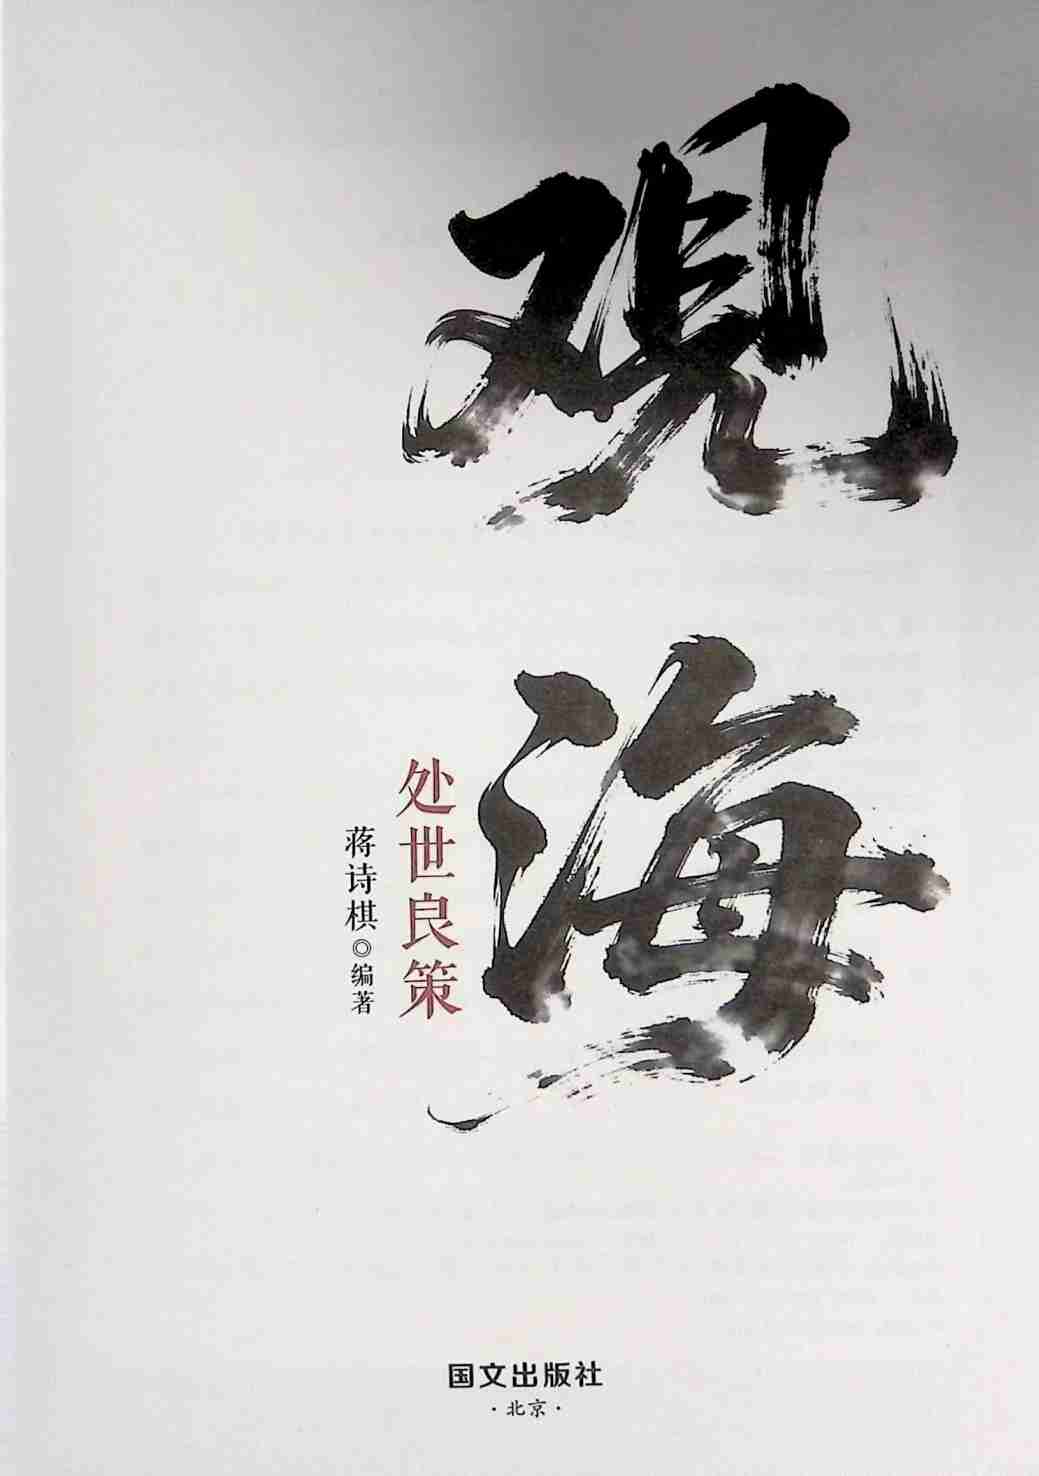 观海
处世良策
蒋诗棋◎编著
国文出版社
·北京·